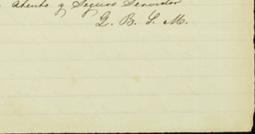 Atento y Seguro Servidor
Q. B. S. M.